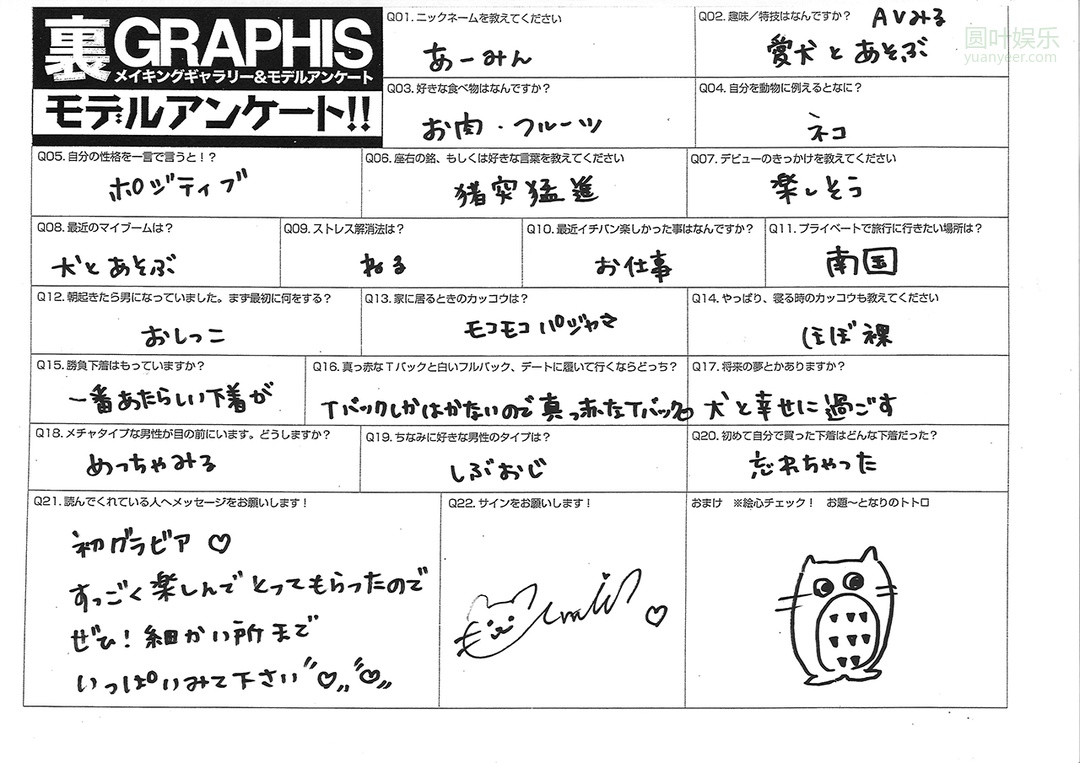 裏GRAPHIS
メイキングギャラリー&モデルアンケート
モデルアンケート!!
Q01.ニックネームを教えてください
あーみん
Q02.趣味/特技はなんですか?
AVみる
愛犬とあそぶ
圆叶娱乐
yuanyeer.com
Q03.好きな食べ物はなんですか?
お肉・フルーツ
Q04.自分を動物に例えるとなに?
ネコ
Q05.自分の性格を一言で言うと!?
ポジティブ
Q06.座右の銘、もしくは好きな言葉を教えてください
猪突猛進
Q07.デビューのきっかけを教えてください
楽しそう
Q08.最近のマイブームは?
犬とあそぶ
Q09.ストレス解消法は?
ねる
Q10.最近イチバン楽しかった事はなんですか?
お仕事
Q11.プライベートで旅行に行きたい場所は?
南国
Q12.朝起きたら男になっていました。まず最初に何をする?
おしっこ
Q13.家に居るときのカッコウは?
モコモコパジャマ
Q14.やっぱり、寝る時のカッコウも教えてください
ほぼ裸
Q15.勝負下着はもっていますか?
一番あたらしい下着が
Q16.真っ赤なTバックと白いフルバック、デートに履いて行くならどっち?
Tバックしかはかないので真っ赤なTバック
Q17.将来の夢とかありますか?
犬と幸せに過ごす
Q18.メチャタイプな男性が目の前にいます。どうしますか?
めっちゃみる
Q19.ちなみに好きな男性のタイプは?
しぶおじ
Q20.初めて自分で買った下着はどんな下着だった?
忘れちゃった
Q21.読んでくれている人へメッセージをお願いします!
初グラビア♡
すっごく楽しんでとってもらったので
ぜひ!細かい所まで
いっぱいみて下さい♡♡
Q22.サインをお願いします!
おまけ ※絵心チェック! お題〜となりのトトロ